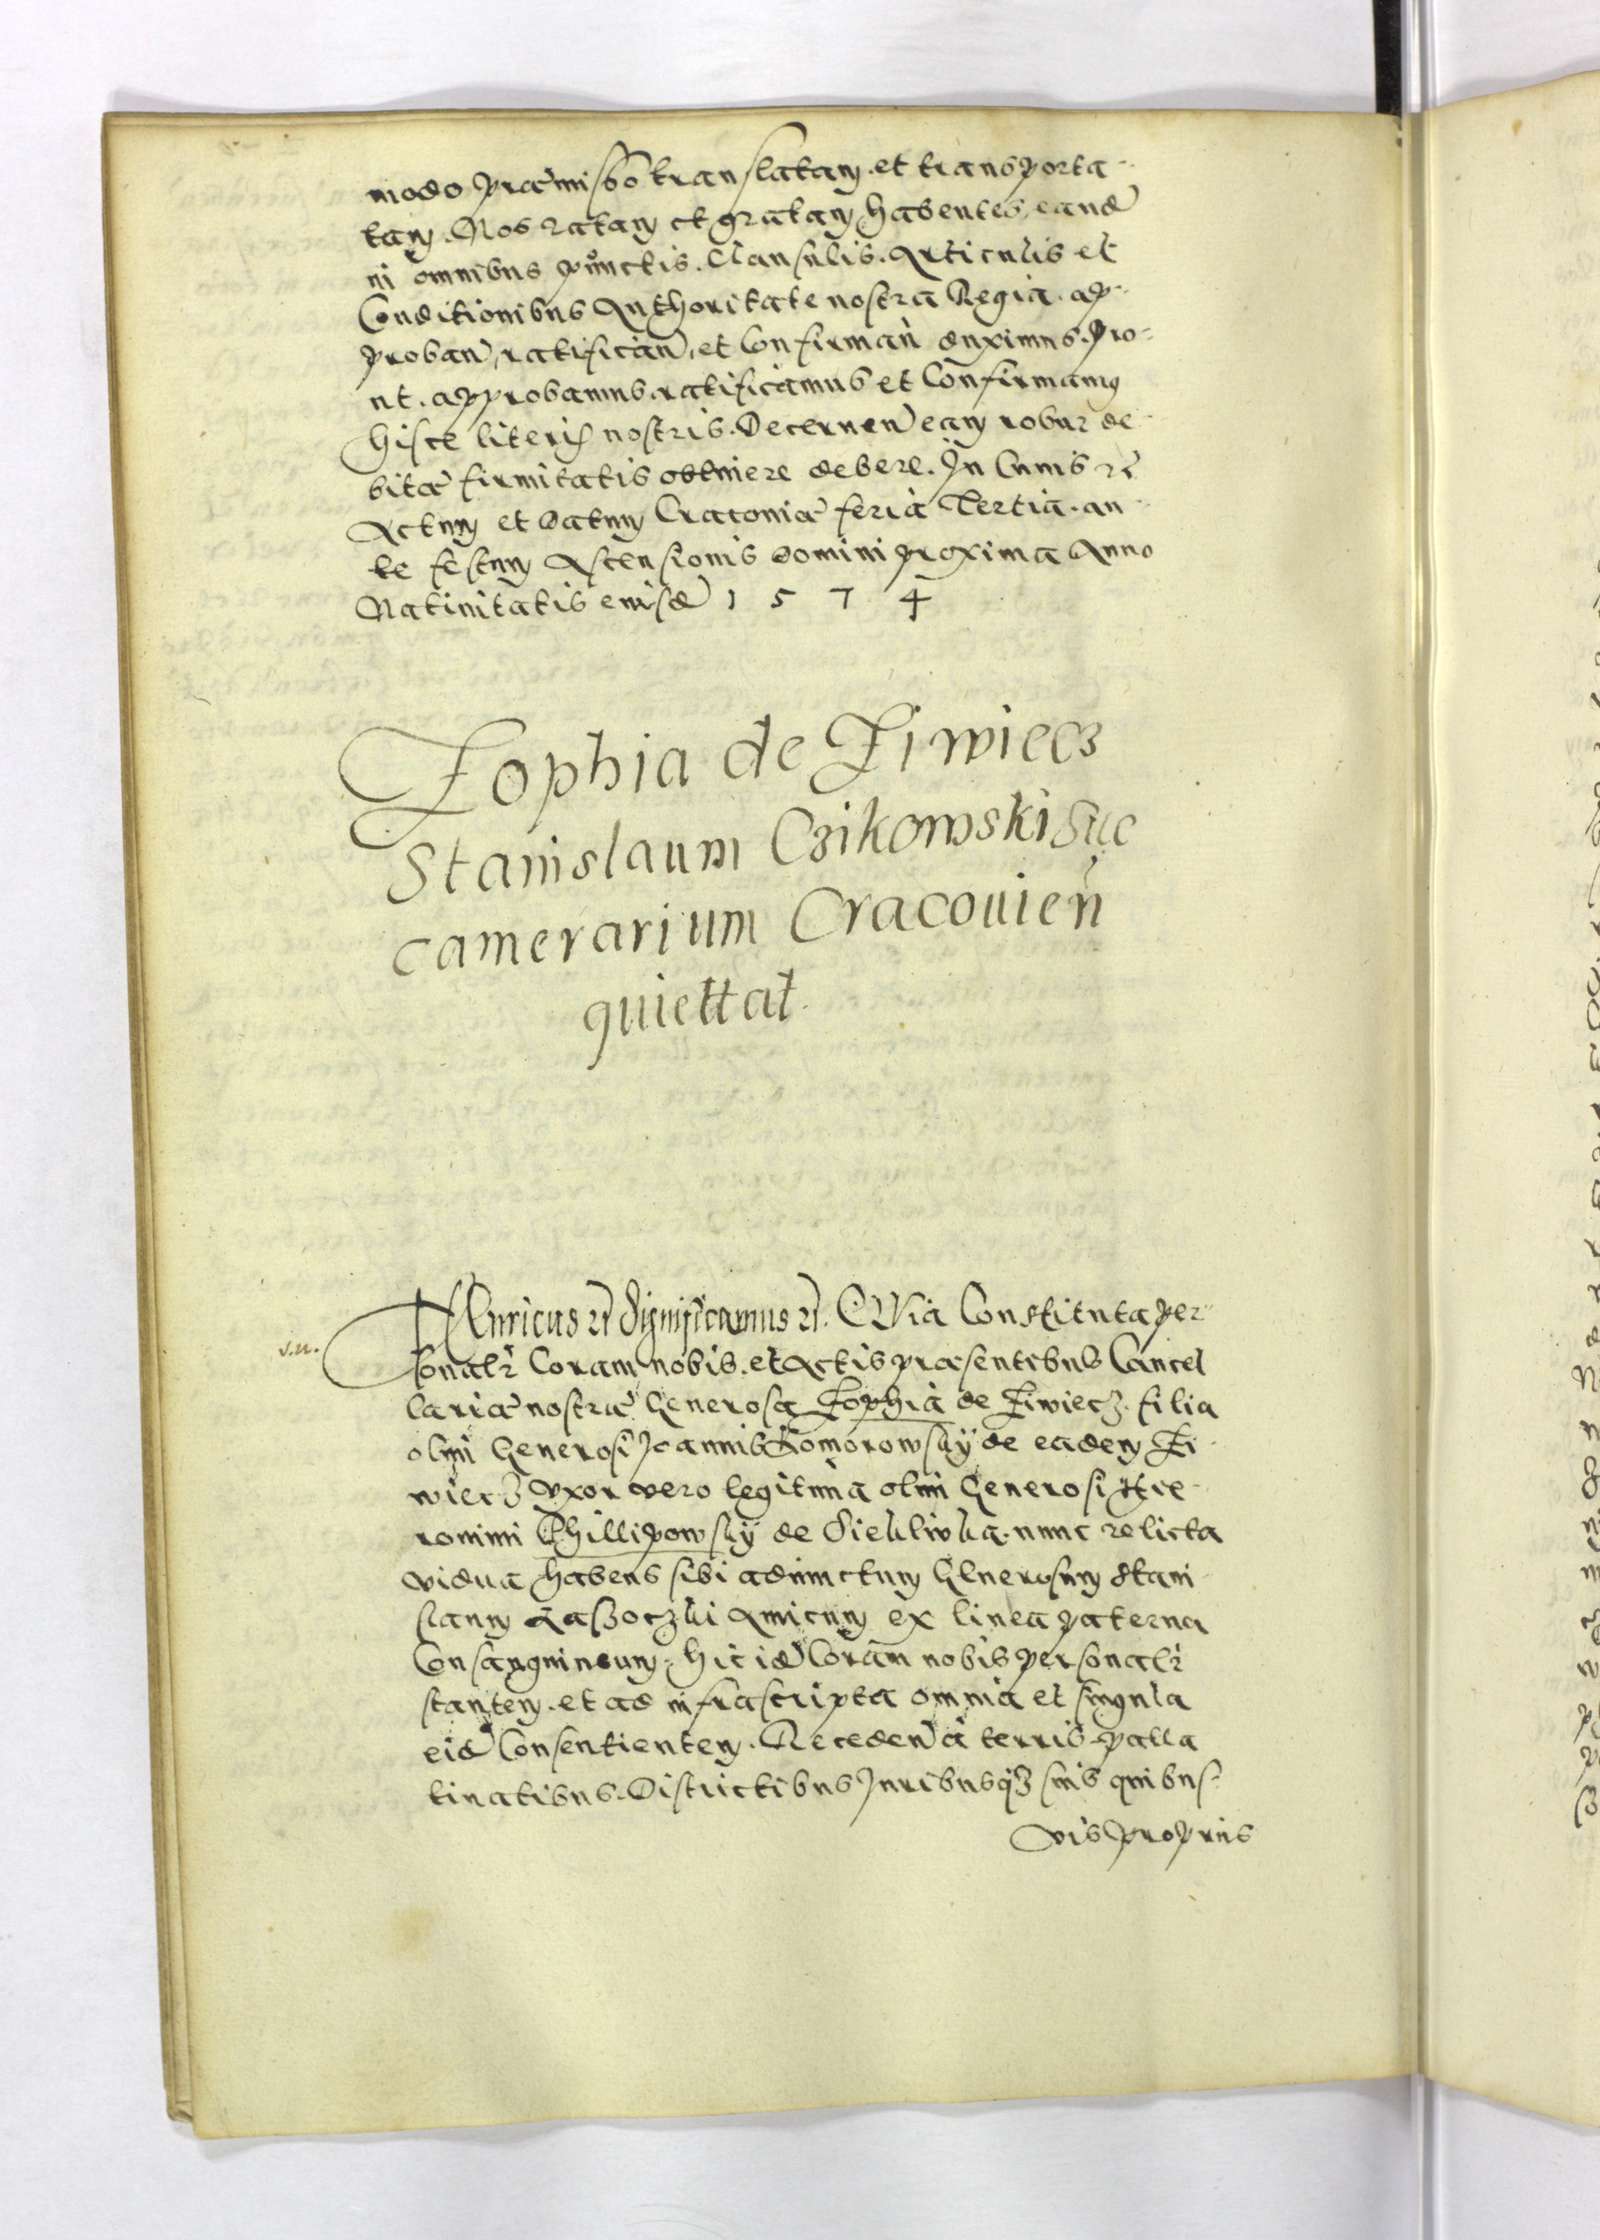 modo præmisso translatam. et transporta-
tam. Nos ratam et gratam habentes, eand
in omnibus punctis. Clausulis. Articulis et
Conditionibus Authoritate nostra Regia. ap-
proban, ratifican, et Confirman duximus. Pro-
ut. approbamus. ratificamus et Confirmamus
hisce literis nostris. Decernen eam robur de-
bitæ firmitatis obtinere debere. In Cuius rei
Actum et Datum Cracoviæ feria Tertia. an-
te festum Ascensionis Domini proxima Anno
Nativitatis eiusd 1574
Zophia de Ziwiecz
Stanislaum Czikowski Suc
camerarium Cracovień
quiettat.
HEnricus etc Significamus etc. QVia Constituta per-
sonalr Coram nobis. et Actis præsentibus Cancel
lariæ nostræ Generosa Zophia de Ziwiecz. filia
olim Generosi Joannis Komorowskÿ de eadem Zi-
wiecz uxor vero legitima olim Generosi Hie-
ronimi Phillipowskÿ de nunc relicta
vidua habens sibi adiunctum Generosum Stani-
slaum Amicum ex linea paterna
Consanguineum. hic id Coram nobis personalr
stantem. et ad infrascripta omnia et singula
eid Consentientem. Receden à terris. palla
tinatibus. Districtibus Juribusqz suis quibus-
vis propriis